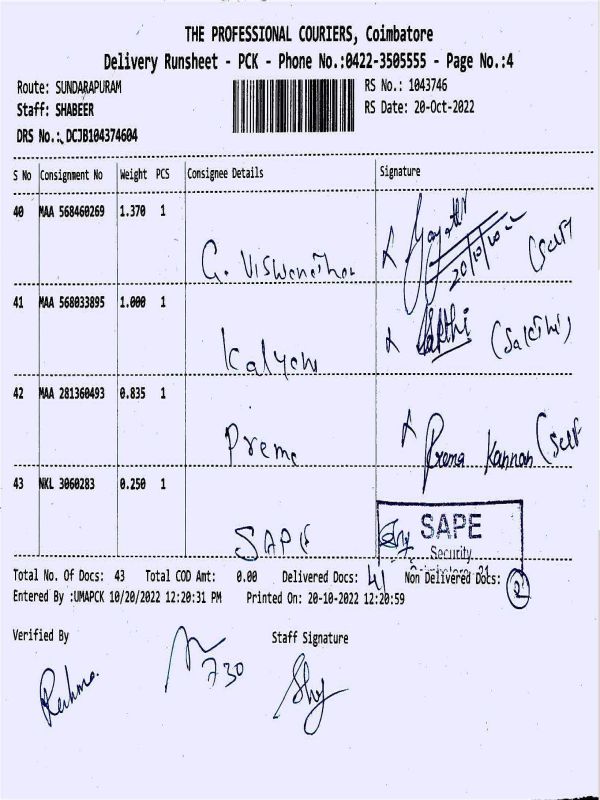 THE PROFESSIONAL COURIERS, Coimbatore
Delivery Runsheet - PCK - Phone No.:0422-3505555 - Page No.:4
Route: SUNDARAPURAM
RS No.: 1043746
Staff: SHABEER
RS Date: 20-Oct-2022
DRS No.: DCJB104374604
S No Consignment No Weight PCS Consignee Details Signature
40 MAA 568460269 1.370 1
G. Viswanathan 20/10/2022 (Self
41 MAA 568033895 1.000 1
Kalyan Sakthi (Sakthi)
42 MAA 281360493 0.835 1
Prema Prema Kannan (Self
43 NKL 3060283 0.250 1
SAPE SAPE
Security
Total No. Of Docs: 43 Total COD Amt: 0.00 Delivered Docs: 41 Non Delivered Docs: 2
Entered By :UMAPCK 10/20/2022 12:20:31 PM Printed On: 20-10-2022 12:20:59
Verified By Staff Signature
730